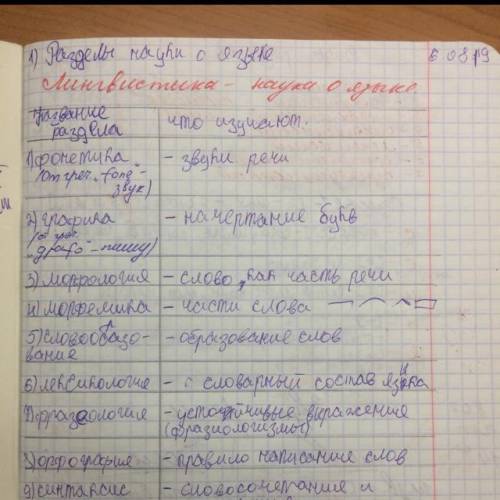 1) Разделы науки о языке
Лингвистика - наука о языке
Название раздела | что изучают
1) фонетика - звуки речи
(от греч. „fong -
звук)
2) графика - начертание букв
„grafo" - пишу)
3) морфология - слово, как часть речи
4) морфемика - части слова
5) словообразо- - образование слов
вание
6) лексикология - словарный состав языка
7) фразеология - устойчивые выражения
(фразиологизмы)
орфография - правило написание слов
9) синтаксис - словосочетание и